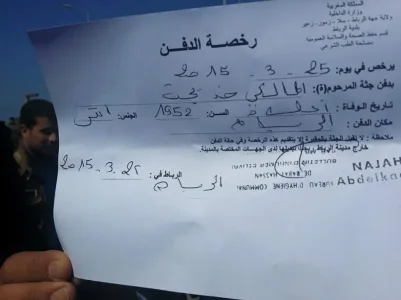 المملكة المغربية
وزارة الداخلية
ولاية جهة الرباط - سلا - زمور - زعير
بلدية الرباط
قسم حفظ الصحة والسلامة العمومية
مصلحة الطب الشرعي
رخصة الدفن
يرخص في يوم: 25 - 3 - 2015
بدفن جثة المرحوم(ة): المالكي خديجة
تاريخ الوفاة: السن: 1952 الجنس: أنثى
مكان الدفن:
ملاحظة: لا تقبل الجثة بالمقبرة إلا بتقديم هذه الرخصة وفي حالة الدفن
خارج مدينة الرباط، لدى الجهات المختصة بالمدينة.
الرباط في: 25 - 3 - 2015
BUREAU D'HYGIENE COMMUNAL
DE RABAT HASSAN
HAJJAN
Abdelka